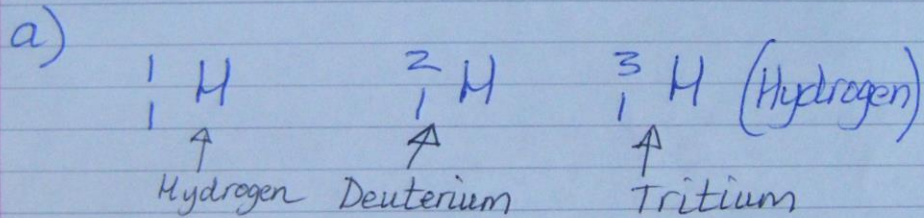 a)
¹₁H ²₁H ³₁H (Hydrogen)
Hydrogen Deuterium Tritium